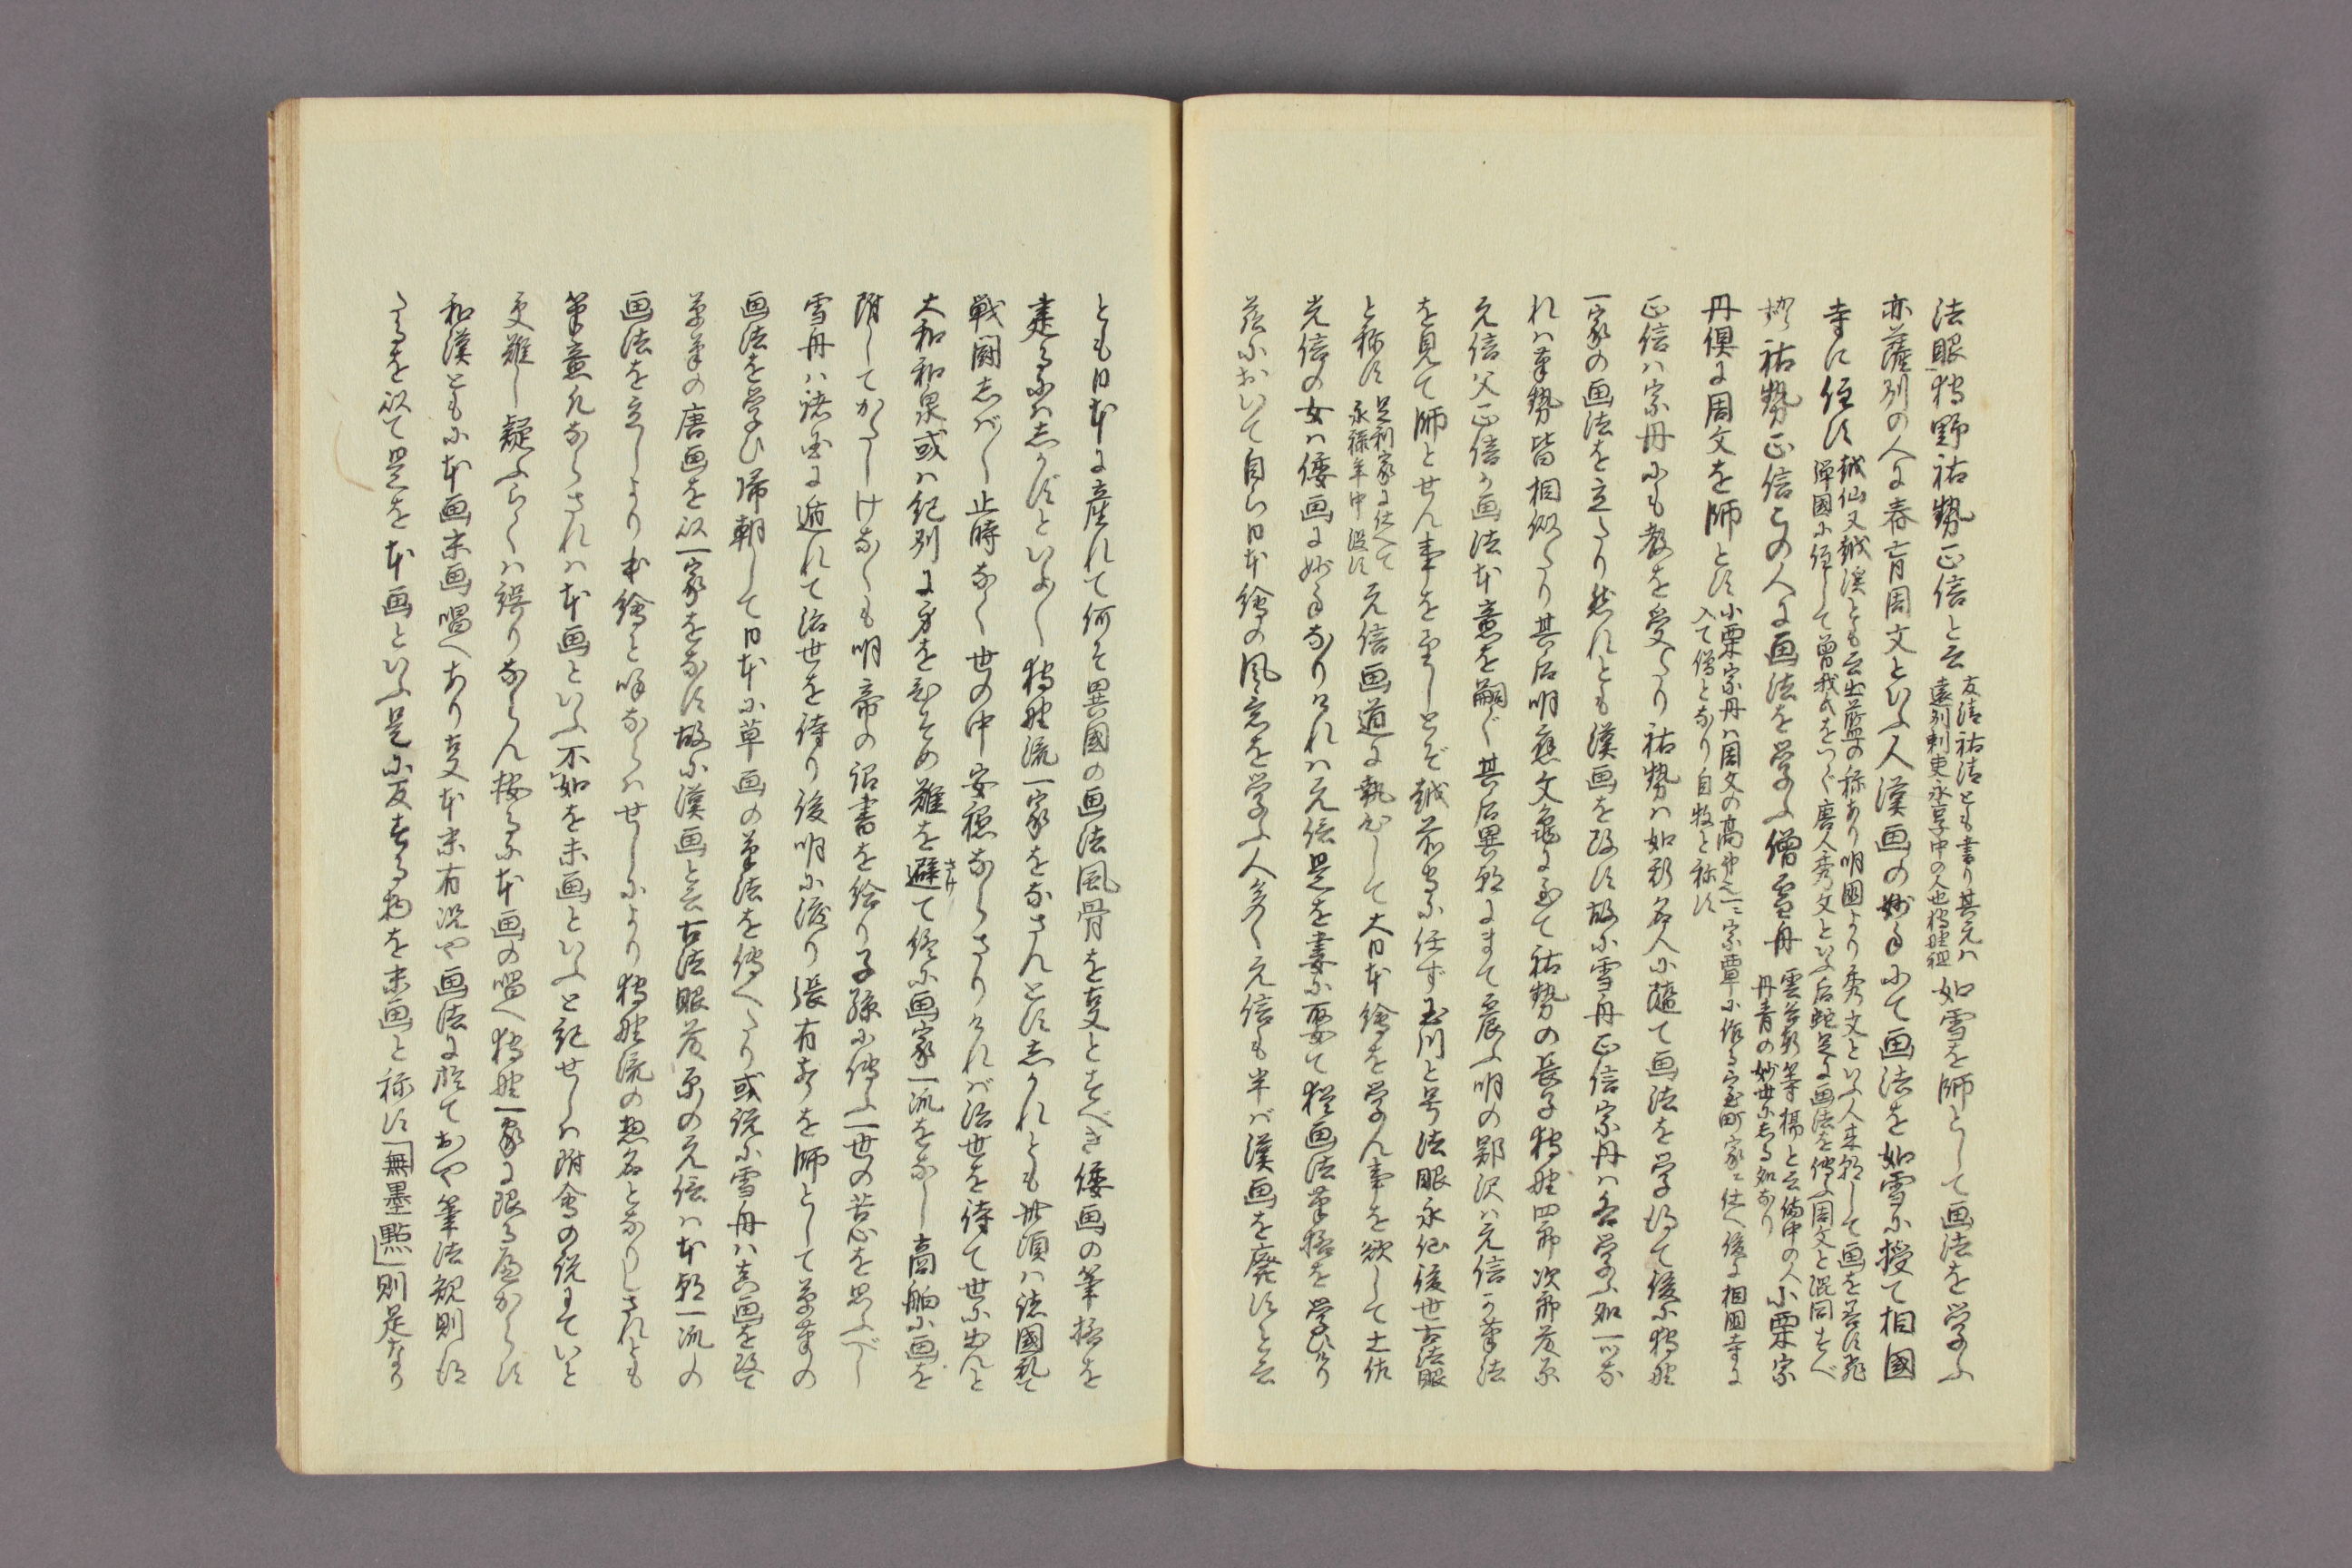 法眼狩野祐勢正信と云 友清祐清とも書り其先ハ 遠州刺吏永享中の人也狩野祖 如雪を師として画法を学ふ
亦薩州の人に春育周文といふ人漢画の妙手にて画法を如雪に授て相國
寺に住す 越仙又越渓とも云出藍の称あり明國より秀文といふ人来朝して画を善す 禅國に住して曽我氏をつぐ唐人秀文といふ后蛇足に画法を傳ふ周文と混同すべ
祐勢正信この人に画法を学ふ僧雪舟 雲谷軒等楊と云備中の人 丹青の妙世にしる如なり 小栗宗
丹倶に周文を師とす 小栗宗丹ハ周文の高弟也一ニ宗覃に作る室町家ニ仕へ後に相國寺に 入て僧となり自牧と称す
正信ハ宗丹にも教を受たり祐勢ハ如斯名人に随て画法を学得て後に狩野
一家の画法を立たり然れとも漢画を改す故に雪舟正信宗丹ハ各学ふ如一つな
れハ筆勢皆相似たり其后明應文亀に至て祐勢の長子狩野四郎次郎藤原
元信父正信の画法本意を嗣ぐ其后異朝にまて震ふ明の鄞沢ハ元信の筆法
を見て師とせん事を望しとぞ越前守に任ず玉川と号法眼永仙後世古法眼
と称す 足利家に仕へて 永禄年中没す 元信画道に執心して大日本繪を学ん事を欲して土佐
光信の女ハ倭画に妙手なりけれハ元信是を妻に娶て猶画法筆格を学ひけり
茲において自ら日本繪の風意を学ふ人多く元信も半バ漢画を廃すと云
とも日本に産れて何そ異國の画法風骨を支とすべき倭画の筆格を
建るにハしかずといよ〱狩野流一家をなさんとすしかれとも此頃ハ諸國乱て
戦闘しバ〱止時なく世の中安穏ならさりけれバ治世を待て世に出んと
大和和泉或ハ紀州に身をひそめ難を避て終に画家一流をなし商舶に画を
附してかたしけなくも明帝の詔書を給り子孫に傳ふ一世の苦心を思ふべし
雪舟ハ諸国に遁れて治世を待り後明に渡り張有声を師として草筆の
画法を学ひ帰朝して日本に草画の筆法を傳へたり或説に雪舟ハ真画を改て
草筆の唐画を以一家をなす故に漢画と云古法眼藤原の元信ハ本朝一流の
画法を立しより本繪と唱ならハせしにより狩野流の惣名となりしされとも
筆意凡ならされハ本画といふ不如を末画といふと記せしハ附會の説にていと
更難し疑ふらくハ誤りならん按るに本画の唱へ狩野一家に限る处からす
和漢ともに本画末画唱へあり豈本末有况や画法に於ておや筆法規則に
たるを以て是を本画といふ是に反する物を末画と称す「無墨點」則是なり